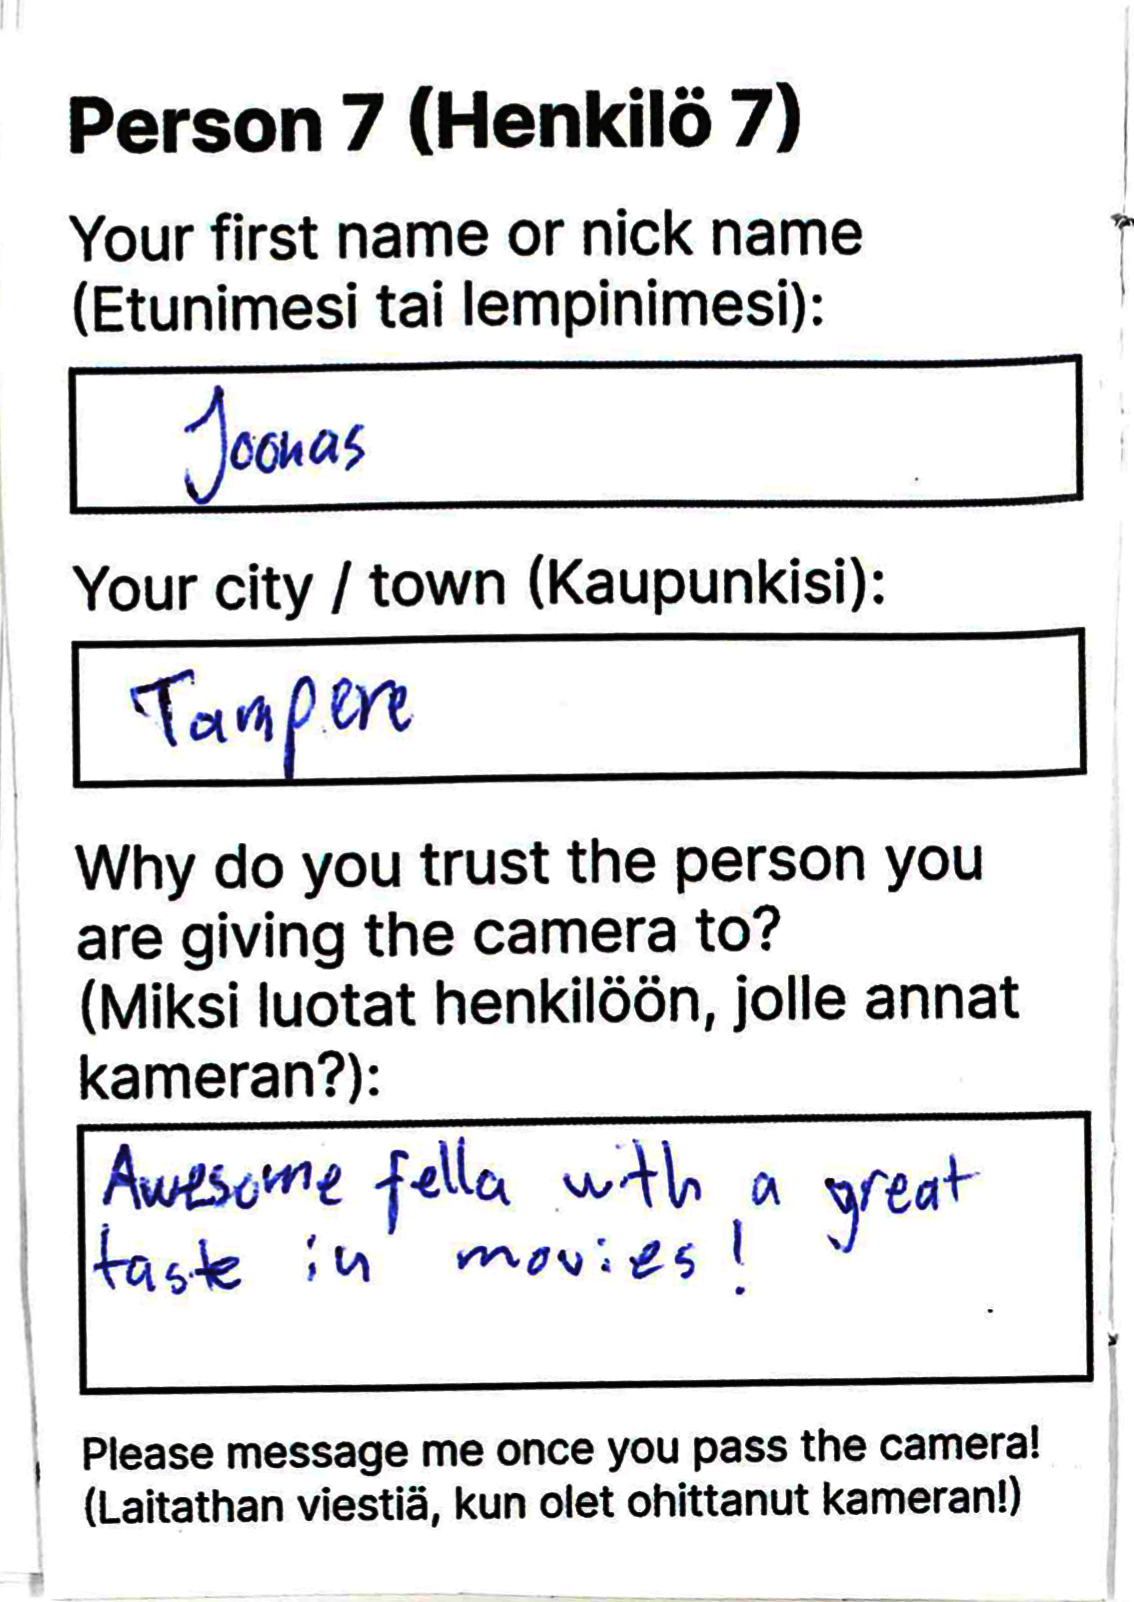 Person 7 (Henkilö 7)
Your first name or nick name
(Etunimesi tai lempinimesi):
Joonas
Your city / town (Kaupunkisi):
Tampere
Why do you trust the person you
are giving the camera to?
(Miksi luotat henkilöön, jolle annat
kameran?):
Awesome fella with a great
taste in movies!
Please message me once you pass the camera!
(Laitathan viestiä, kun olet ohittanut kameran!)